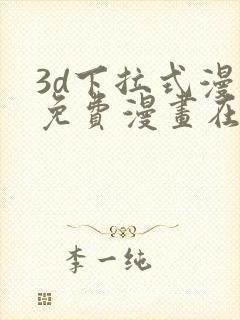 3d下拉式漫
免費漫畫在
李一纯